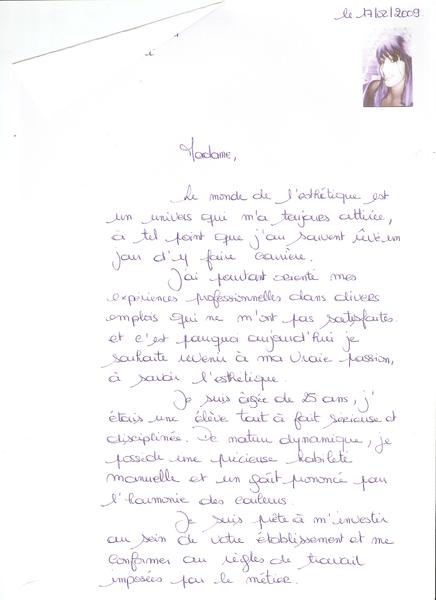 le 17/02/2009
Madame,
Le monde de l'esthétique est
un univers qui m'a toujours attirée,
à tel point que j'ai souvent rêvé un
jour d'y faire carrière.
J'ai pourtant orienté mes
expériences professionnelles dans divers
emplois qui ne m'ont pas satisfaites.
et c'est pourquoi aujourd'hui je
souhaite revenir à ma vraie passion,
à savoir l'esthétique.
Je suis âgée de 25 ans, j'
étais une élève tout à fait sérieuse et
disciplinée. De nature dynamique, je
possède une précieuse habileté
manuelle et un goût prononcé pour
l'harmonie des couleurs.
Je suis prête à m'investir
au sein de votre établissement et me
conformer au règles de travail
imposées par le métier.